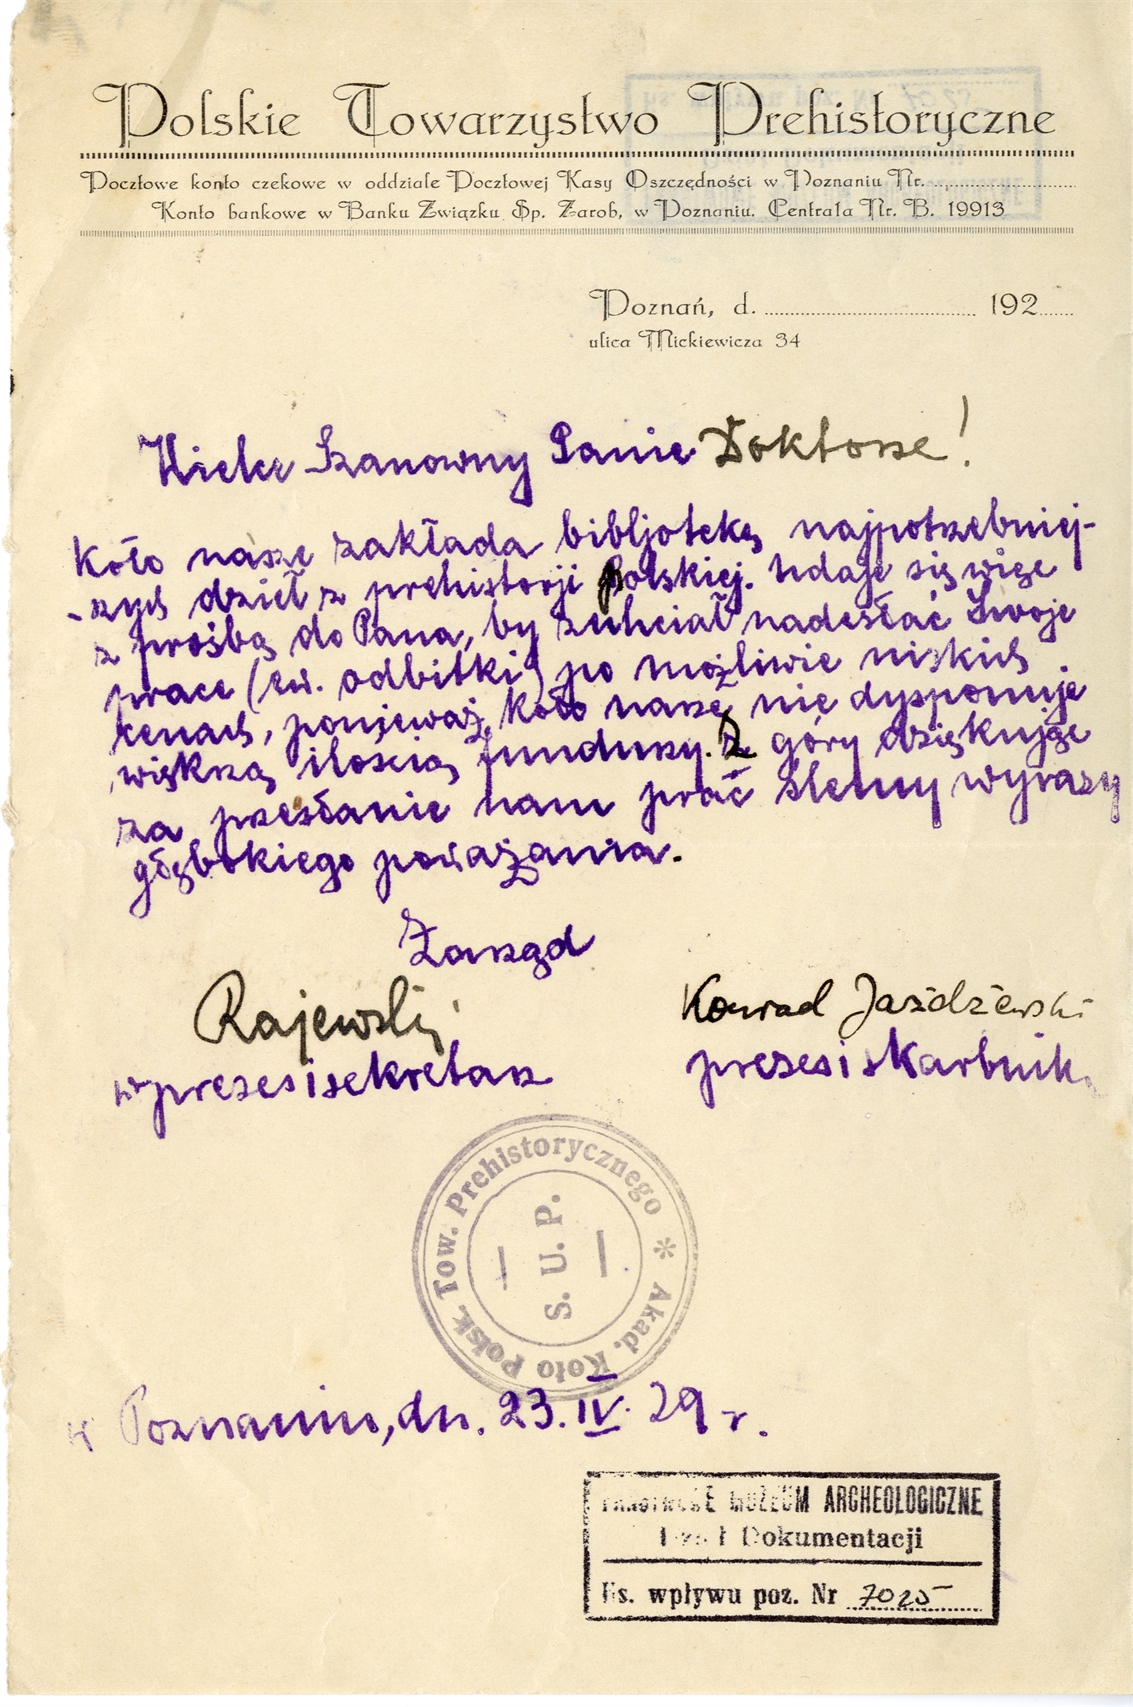 Polskie Towarzystwo Prehistoryczne
Pocztowe konto czekowe w oddziale Pocztowej Kasy Oszczędności w Poznaniu Nr.
Konto bankowe w Banku Związku Sp. Zarob, w Poznaniu. Centrala Nr. B. 19913
Poznań, d. 192
ulica Mickiewicza 34
Wielce Szanowny Panie Doktorze!
Koło nasze zakłada bibljotekę najpotrzebniej-
-szych dzieł z prehistorji polskiej. Udaje się więc
z prośbą do Pana, by zechciał nadesłać Swoje
prace (ew. odbitki) po możliwie niskich
cenach, ponieważ koło nasze nie dysponuje
większą ilością funduszy. Z góry dziękując
za przesłanie nam prac ślemy wyrazy
głębokiego poważania.
Zarząd
Rajewski
wprezes i sekretarz
Konrad Jażdżewski
prezes i skarbnik
Akad. Koło Polsk. Tow. Prehistorycznego *
S. U. P.
w Poznaniu, dn. 23. IV. 29 r.
PAŃSTWOWE MUZEUM ARCHEOLOGICZNE
Dział Dokumentacji
Ks. wpływu poz. Nr 7025